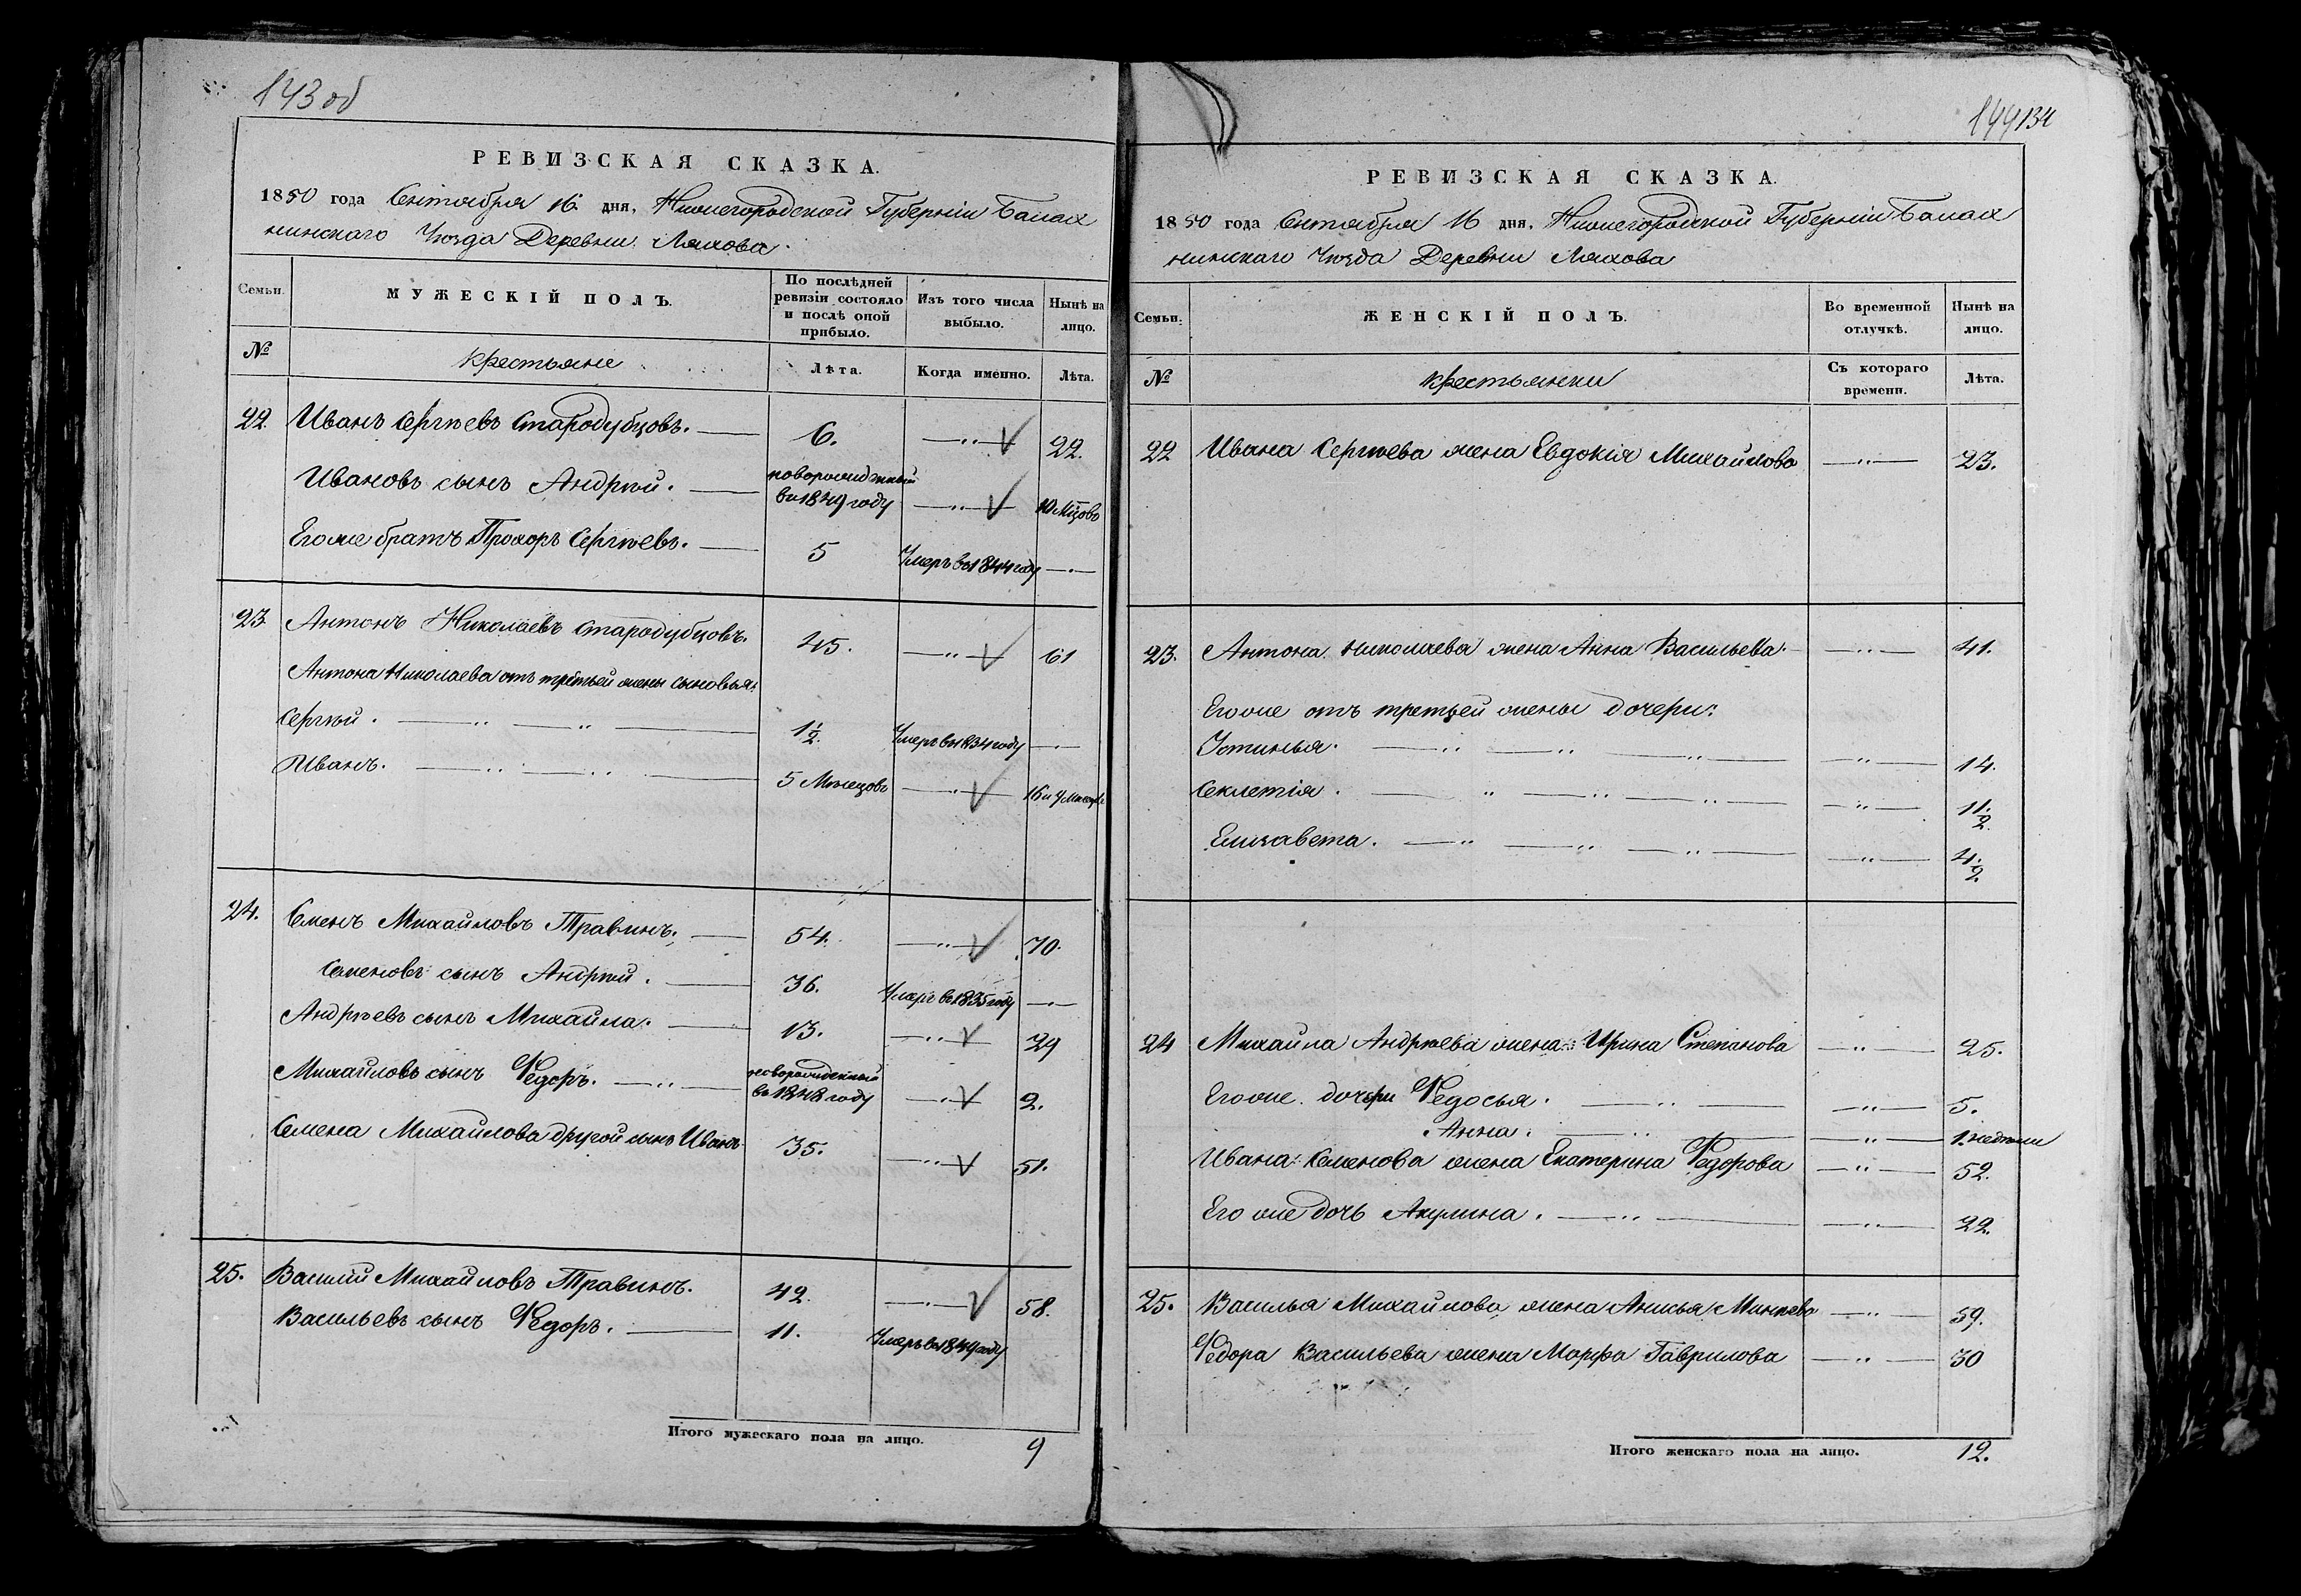 143 об
РЕВИЗСКАЯ СКАЗКА.
1850 года Сентября 16 дня, Нижегородской Губерніи Балах
нинскаго Уѣзда Деревни Ляхова.
Семьи.
МУЖЕСКІЙ ПОЛЪ.
По послѣдней ревизіи состояло и послѣ оной прибыло.
Изъ того числа выбыло.
Нынѣ на лицо.
№
Крестьяне
Лѣта.
Когда именно.
Лѣта.
22. Иванъ Сергѣевъ Стародубцовъ. 6. 22.
Ивановъ сынъ Андрѣй. новорожденный въ 1849 году 10 Мцовъ
Его же братъ Прохоръ Сергѣевъ. 5 Умеръ въ 1844 году
23 Антонъ Николаевъ Стародубцовъ. 45. 61
Антона Николаева отъ третьей жены сыновья:
Сергѣй. 1½. Умеръ въ 1834 году
Иванъ. 5 Мѣсецовъ 16 и
24. Семенъ Михайловъ Травинъ. 54. 70.
Семеновъ сынъ Андрѣй. 36. Умеръ въ 1835 году
Андрѣевъ сынъ Михайла. 13. 29
Михайловъ сынъ Федоръ. новорожденный въ 1848 году 2.
Семена Михайлова другой сынъ Иванъ 35. 51.
25. Василій Михайловъ Травинъ. 42. 58.
Васильевъ сынъ Федоръ. 11. Умеръ въ 1849 году
Итого мужескаго пола на лицо. 9
144 134
РЕВИЗСКАЯ СКАЗКА.
1850 года Сентября 16 дня, Нижегородской Губерніи Балах
нинскаго Уѣзда Деревни Ляхова
Семьи.
ЖЕНСКІЙ ПОЛЪ.
Во временной отлучкѣ.
Нынѣ на лицо.
№
Крестьянки
Съ котораго времени.
Лѣта.
22 Ивана Сергѣева жена Евдокія Михайлова 23.
23. Антона Николаева жена Анна Васильева. 41.
Его же отъ третьей жены дочери:
Устинья. 14.
Секлетія. 11½.
Елизавета. 4½.
24 Михайла Андрѣева жена Ирина Степанова 25.
Его же дочери Федосья. 5.
Анна. 1. недѣли
Ивана Семенова жена Екатерина Федорова 52.
Его же дочь Акулина. 22.
25. Василья Михайлова жена Анисья Минѣева 59.
Федора Васильева жена Марфа Гаврилова 30
Итого женскаго пола на лицо. 12.